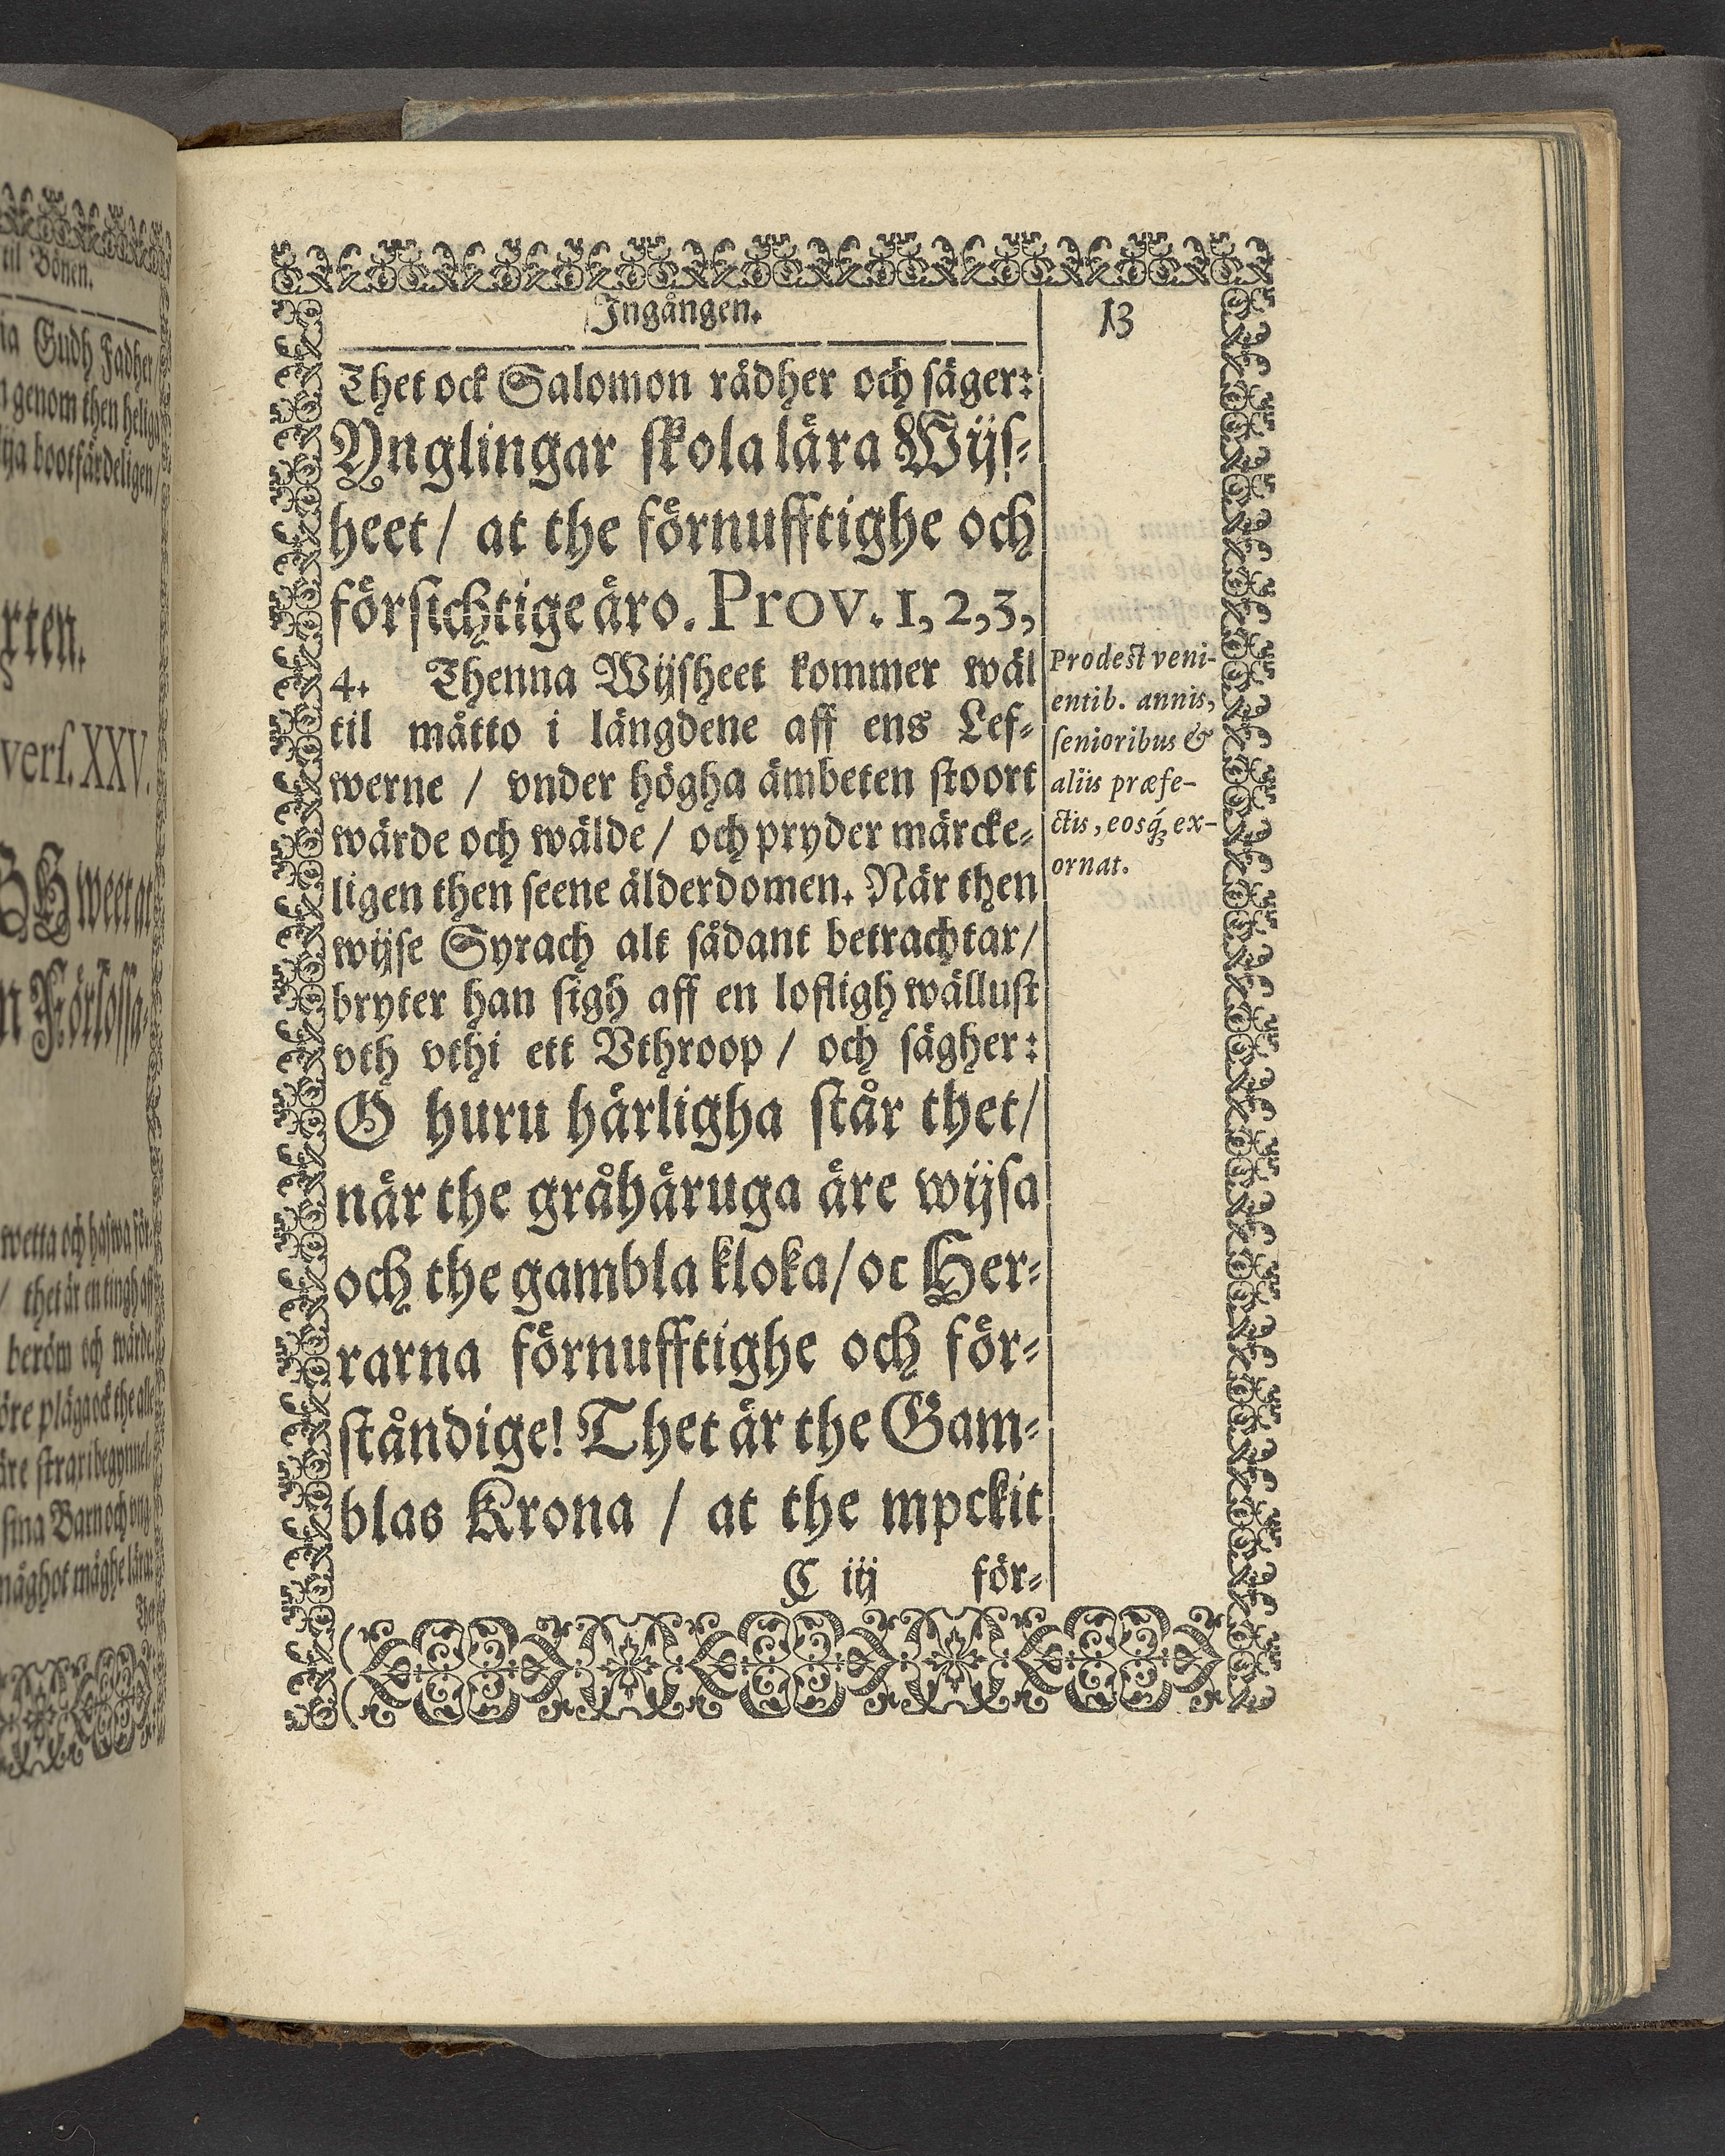 til Bönen.
ia Gudh Fadher/
n genom then helige
tja bootfärdeligen/
xten.
vers. XXV.
GH weet at
n Förlossa-
wetta och hafwa för-
/ thet är en tingh aff
beröm och wärde.
öre pläga ock the alle
äre strax i begynnel-
sina Barn och vng-
någhot måghe lära:
Ingången.
13
Thet ock Salomon rådher och säger:
Ynglingar skola lära Wijs-
heet/ at the förnufftighe och
försichtige äro. Prov. 1, 2, 3,
4. Thenna Wijsheet kommer wäl
til måtto i längdene aff ens Lef-
werne / vnder högha ämbeten stoort
wärde och wälde/ och pryder märcke-
ligen then seene ålderdomen. När then
wijse Syrach alt sådant betrachtar/
bryter han sigh aff en lofligh wällust
vth vthi ett Vthroop / och sägher:
O huru härligha står thet/
når the gråhåruga åre wijsa
och the gambla kloka/oc Her-
rarna förnufftighe och för-
ståndige! Thet är the Gam-
blas Krona / at the mpckit
C iij för-
Prodest veni-
entib. annis,
senioribus &
aliis præfe-
ctis, eosq́; ex-
ornat.